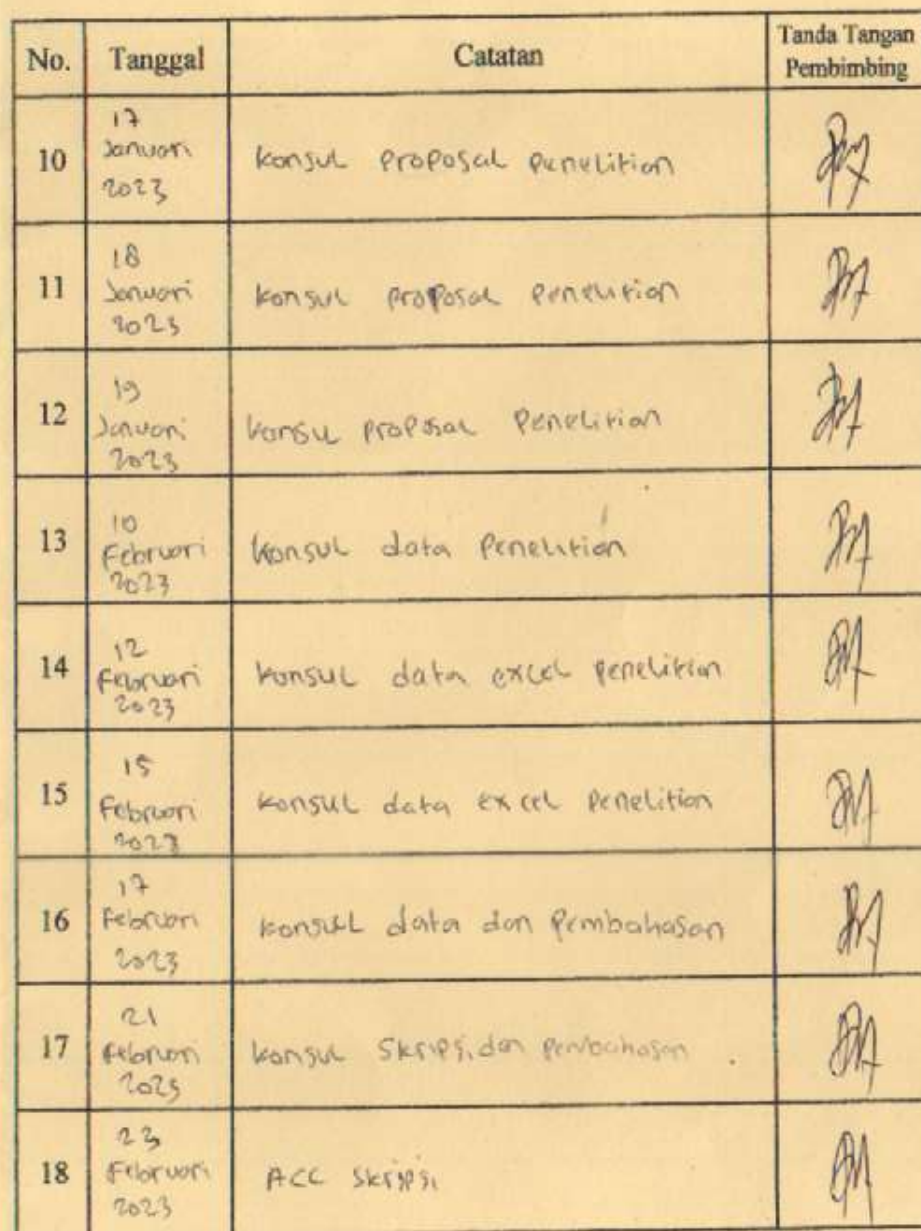 No. Tanggal Catatan Tanda Tangan
Pembimbing
10 17
Januari
2023 Konsul proposal penelitian
11 18
Januari
2023 Konsul proposal penelitian
12 19
Januari
2023 Konsul proposal penelitian
13 10
Februari
2023 Konsul data penelitian
14 12
Februari
2023 Konsul data excel penelitian
15 15
Februari
2023 Konsul data excel penelitian
16 17
Februari
2023 Konsul data dan pembahasan
17 21
Februari
2023 Konsul skripsi dan pembahasan
18 23
Februari
2023 ACC skripsi